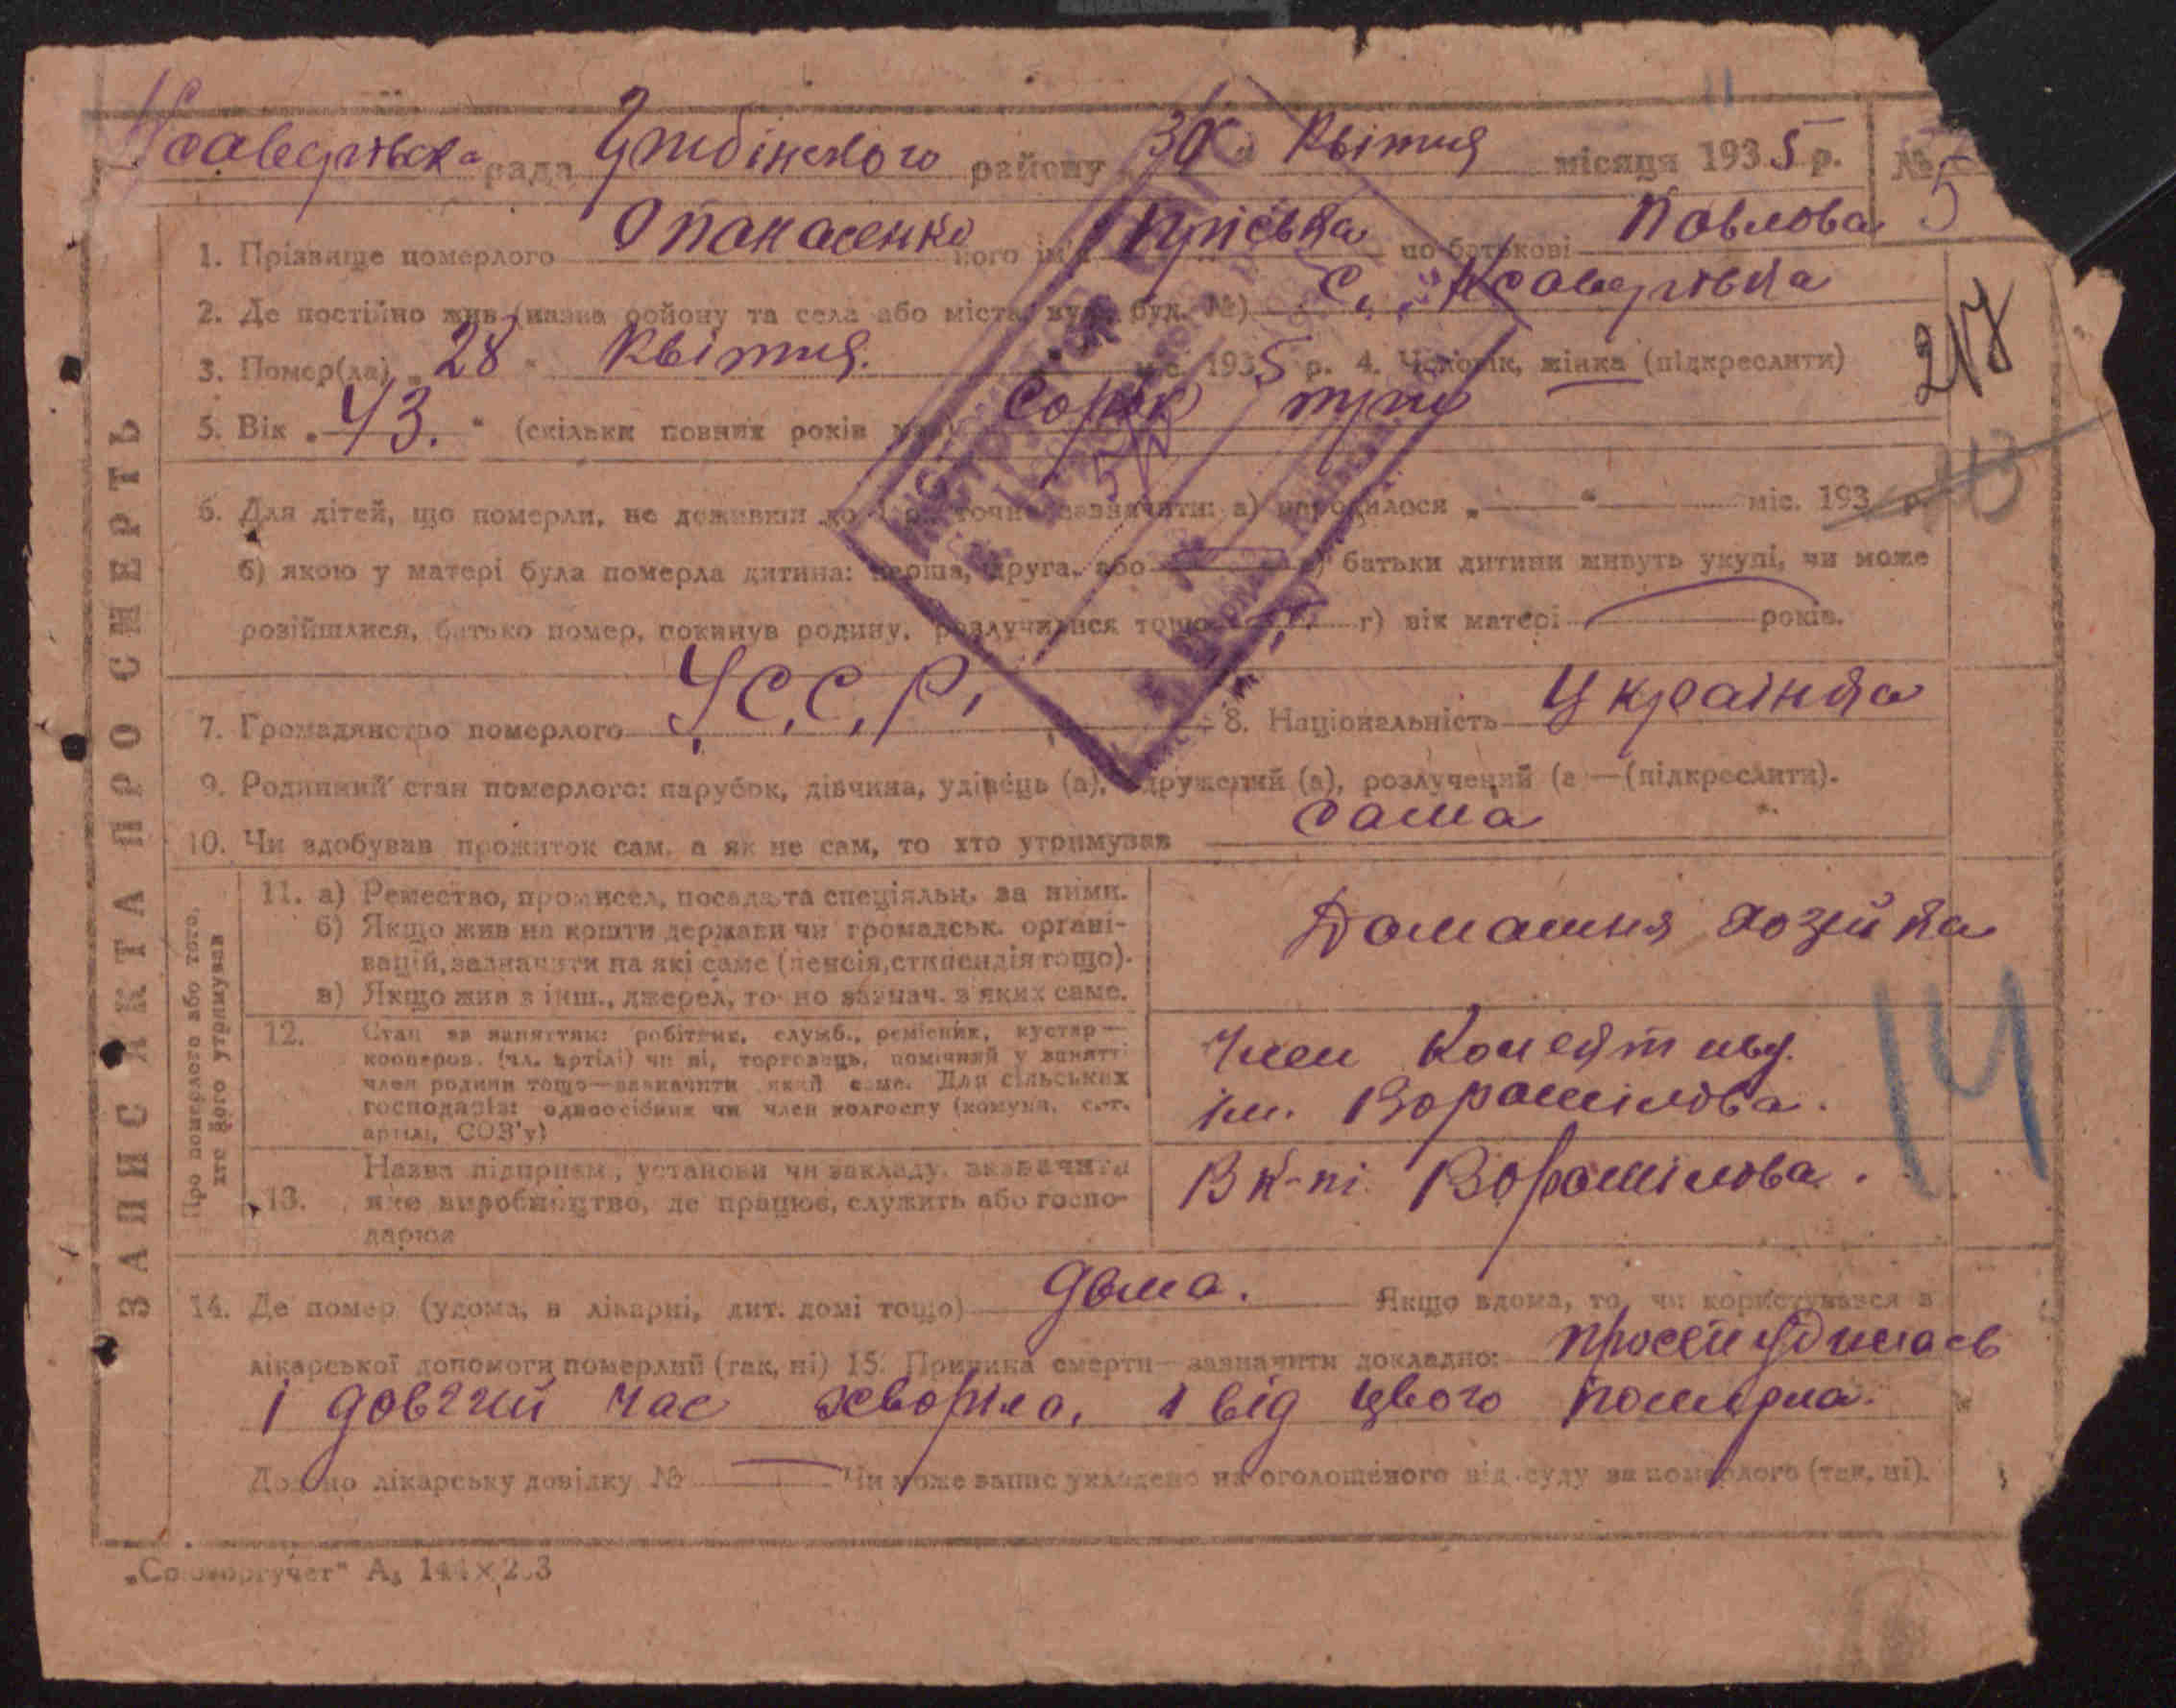 Ксаверівська рада Цибінского району „30“ Квітня місяця 1935 р. № 5
1. Прізвище померлого Опанасенко його ім'я Пріська по батькові Павлова
2. Де постійно жив (назва району та села або міста, вул., буд. №) с. Ксаверівка
3. Помер(ла) „28“ Квітня. міс. 1935 р. 4. Чоловік, жінка (підкреслити)
217
5. Вік „43.“ (скільки повних років мав) сорок три
6. Для дітей, що померли, не доживши до 1 р. точно зазначити: а) народилося „—“ — міс. 193 р.
б) якою у матері була померла дитина: перша, друга, або — в) батьки дитини живуть укупі, чи може
розійшлися, батько помер, покинув родину, розлучилися тощо г) вік матері — років.
7. Громадянство померлого У.С.С.Р. 8. Національність Українка
9. Родинний стан померлого: парубок, дівчина, удівець (а), одружений (а), розлучений (а)—(підкреслити).
10. Чи здобував прожиток сам, а як не сам, то хто утримував сама
ЗАПИС АКТА ПРО СМЕРТЬ
Про померлого або того, хто його утримував
11. а) Ремество, промисел, посада та спеціяльн. за ними.
б) Якщо жив на кошти держави чи громадськ. органі-
зацій, зазначити на які саме (пенсія, стипендія тощо).
в) Якщо жив з інш., джерел, то но зазнач. з яких саме.
Домашня хозяйка
12. Стан за заняттям: робітник, служб., ремісник, кустар—
кооперов. (чл. артілі) чи ні, торговець, помічний у занятті
член родини тощо—зазначити який саме. Для сільських
господарів: одноосібник чи член колгоспу (комуни, с.-г.
артілі, СОЗ'у)
Член Колективу
ім. Ворошілова.
14
13. Назва підприєм., установи чи закладу, зазначити
яке виробництво, де працює, служить або госпо-
дарює
В к-пі Ворошілова.
14. Де помер (удома, в лікарні, дит. домі тощо) дома. Якщо вдома, то, чи користувався з
лікарської допомоги померлий (так, ні) 15. Причина смерти—зазначити докладно: простудилась
і довгий час хворіла, і від цього померла.
Додано лікарську довідку № — Чи може запис укладено на оголошеного від суду за померлого (так, ні).
„Союзоргучет“ А₅ 144×2.3